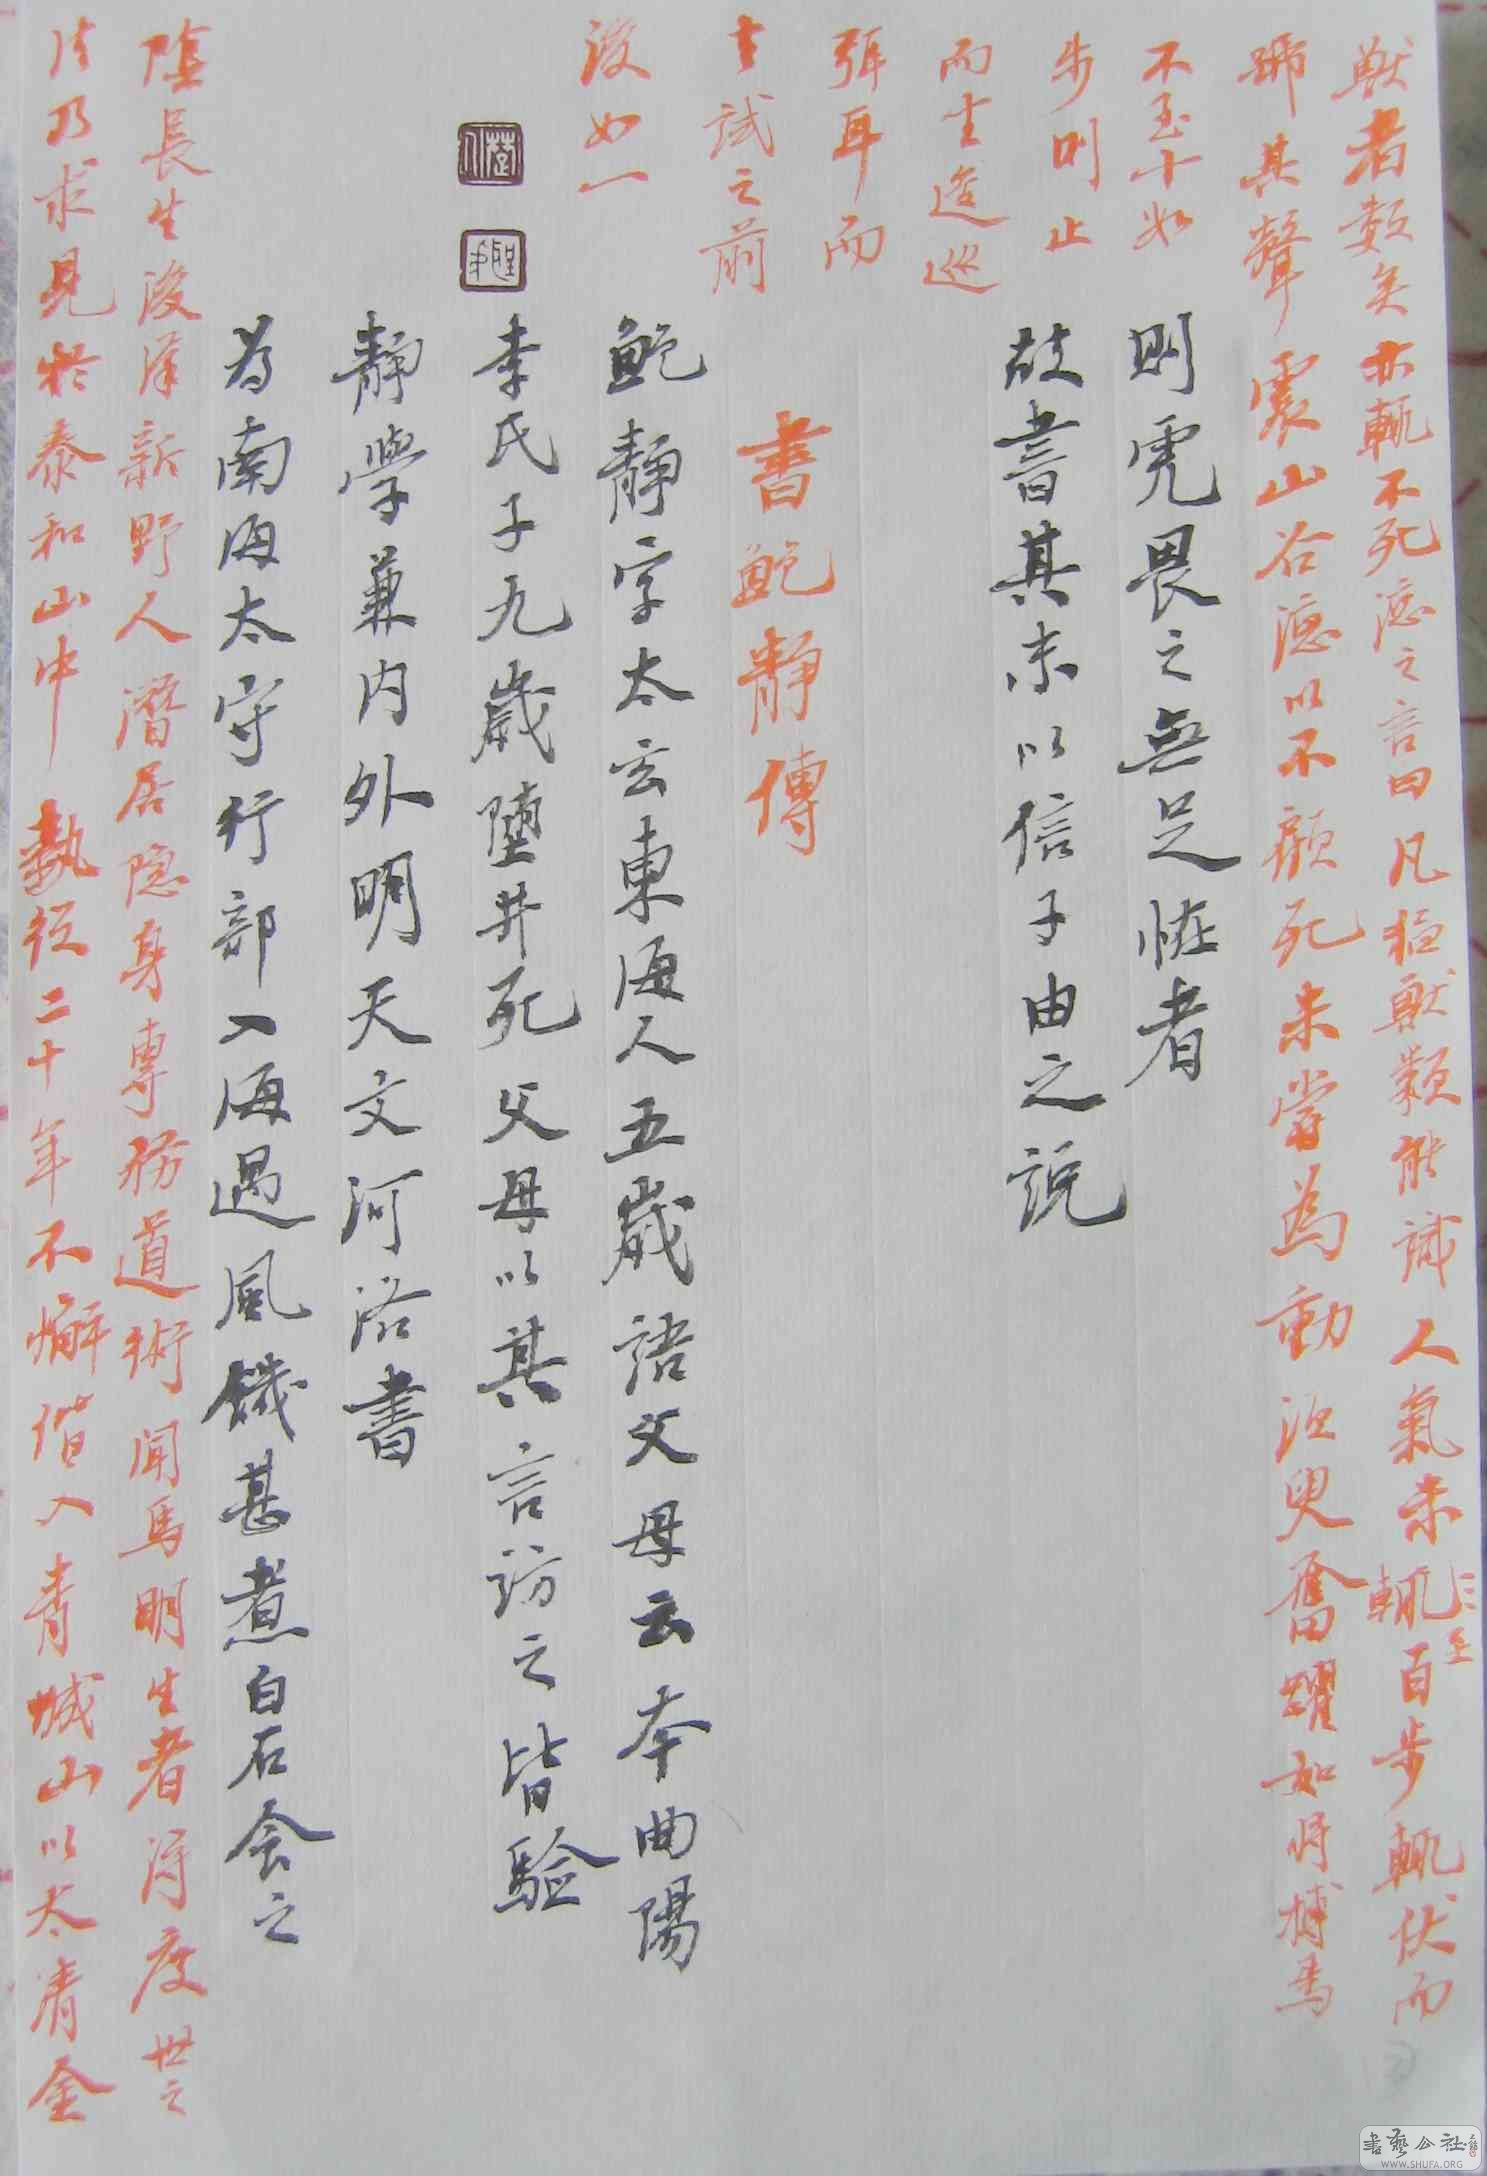 獸者數矣亦輒不死應之言曰凡猛獸類能識人氣未輒百步輒伏而
至
號其聲震山谷應以不顧死未嘗為動須臾奮躍如將搏焉
不至十如
步則止
而坐逡巡
弭耳而
去試之前
後如一
則虎畏之無足怪者
故書其末以信子由之說
書鮑靜傳
鮑靜字太玄東海人五歲語父母云本曲陽
李氏子九歲墮井死父母以其言訪之皆驗
靜學兼內外明天文河洛書
為南海太守行部入海遇風饑甚煮白石食之
陰長生後漢新野人潛居隱身專務道術聞馬明生者得度世之
法乃求見於泰和山中執役二十年不懈偕入青城山以太清金
書藝公社
WWW.SHUFA.ORG